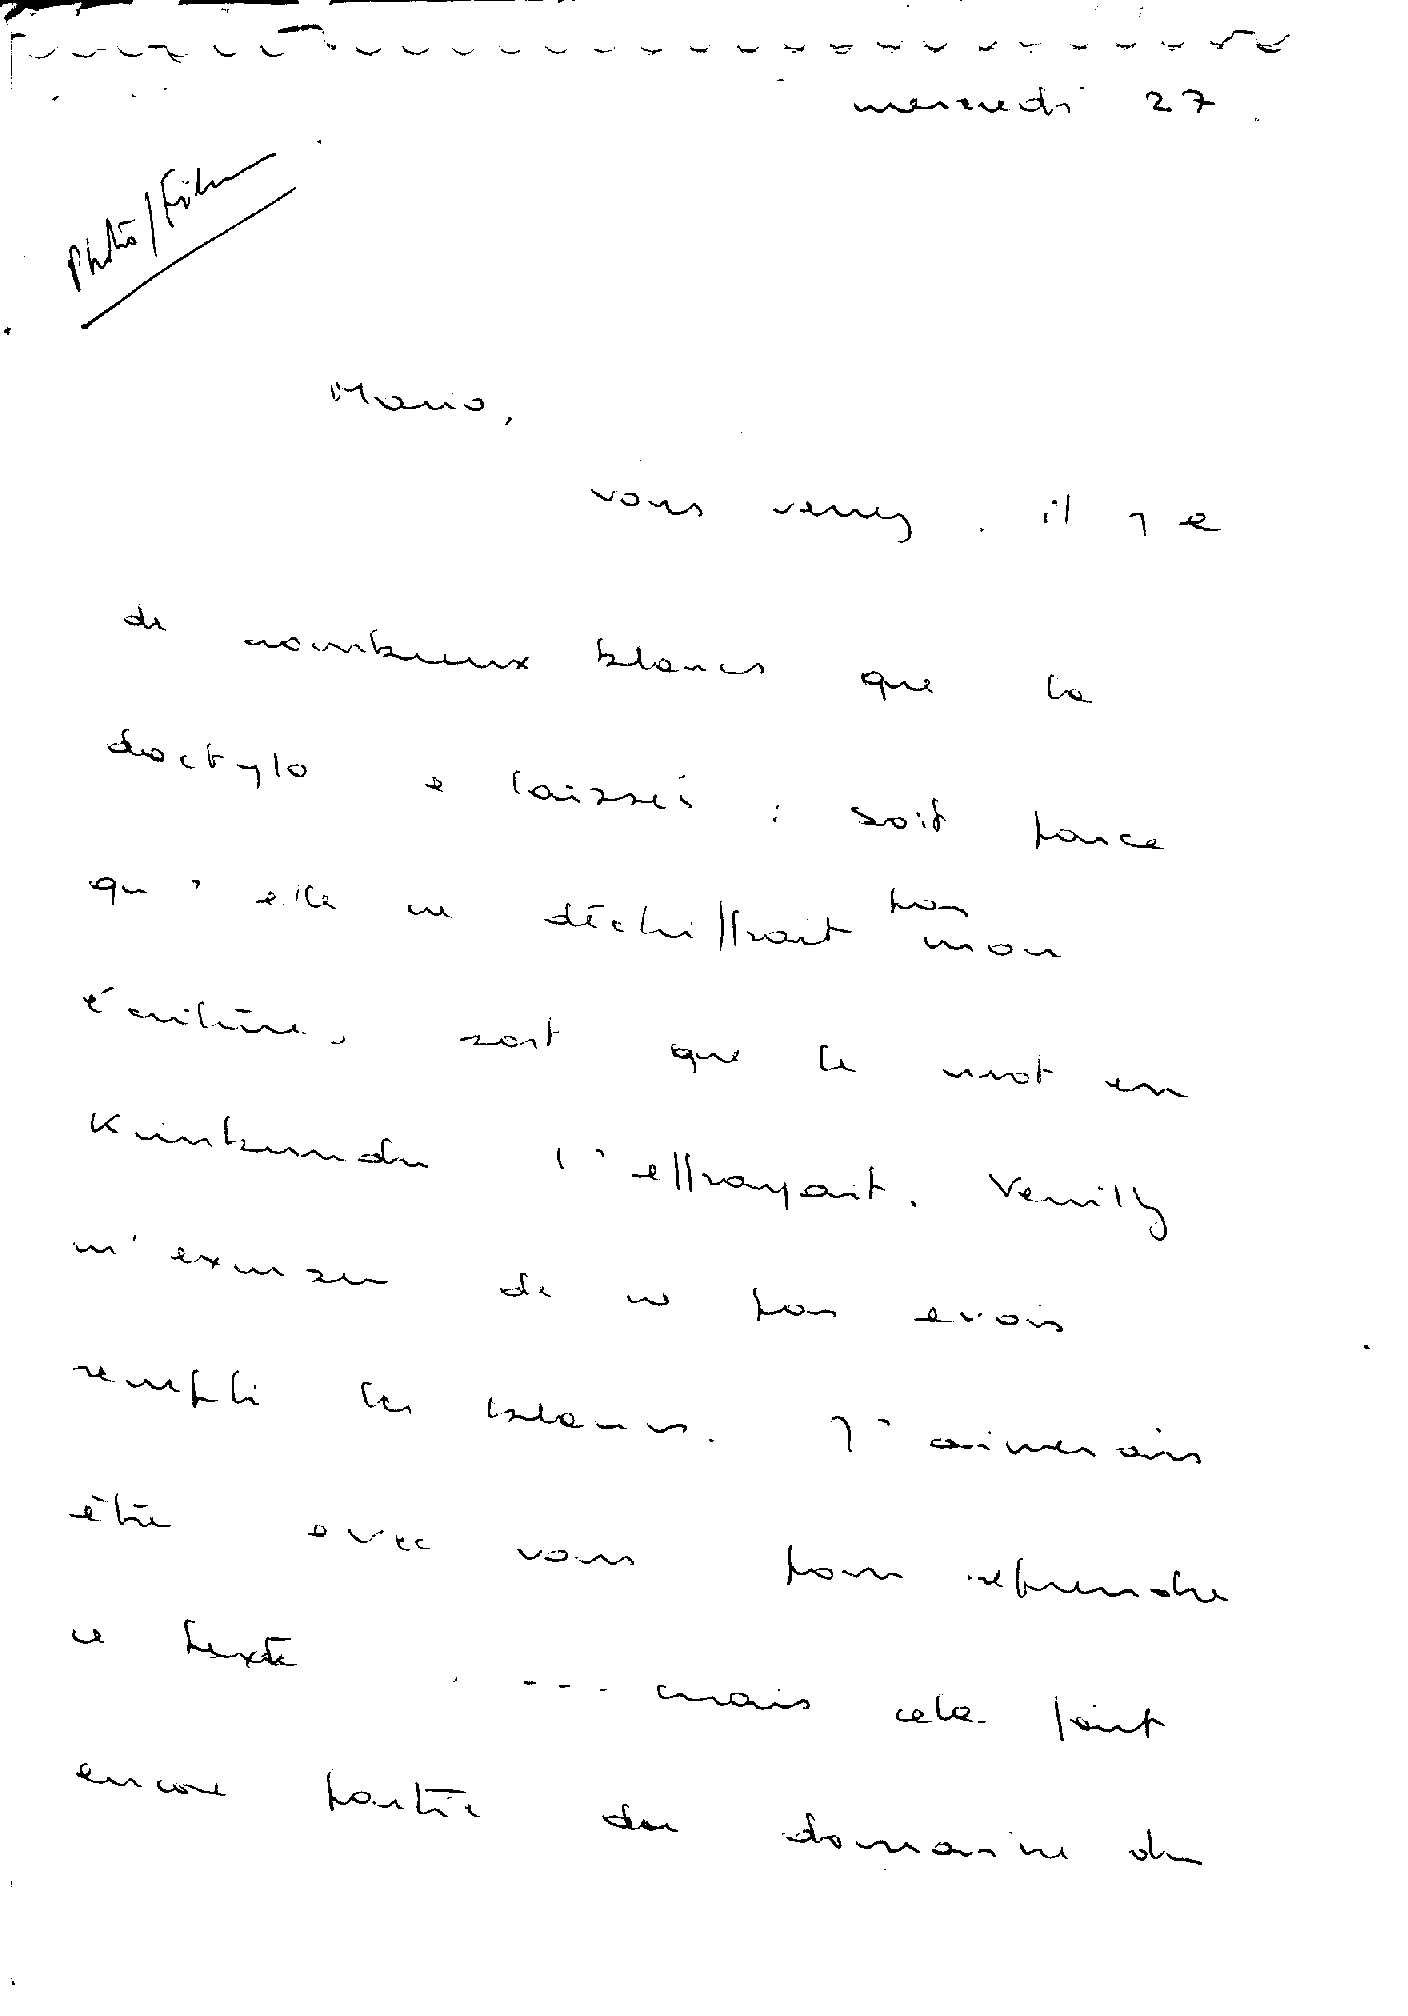 mercredi 27
Photo/Film
Mario,
vous verrez. il y a
de nombreux blancs que la
dactylo a laissés : soit parce
qu'elle ne déchiffrait pas mon
écriture, soit que le mot en
Kimbundu l'effrayait. Veuillez
m'excuser de ne pas avoir
rempli les blancs. J'aimerais
être avec vous pour reprendre
ce texte .... mais cela fait
encore partie du domaine du